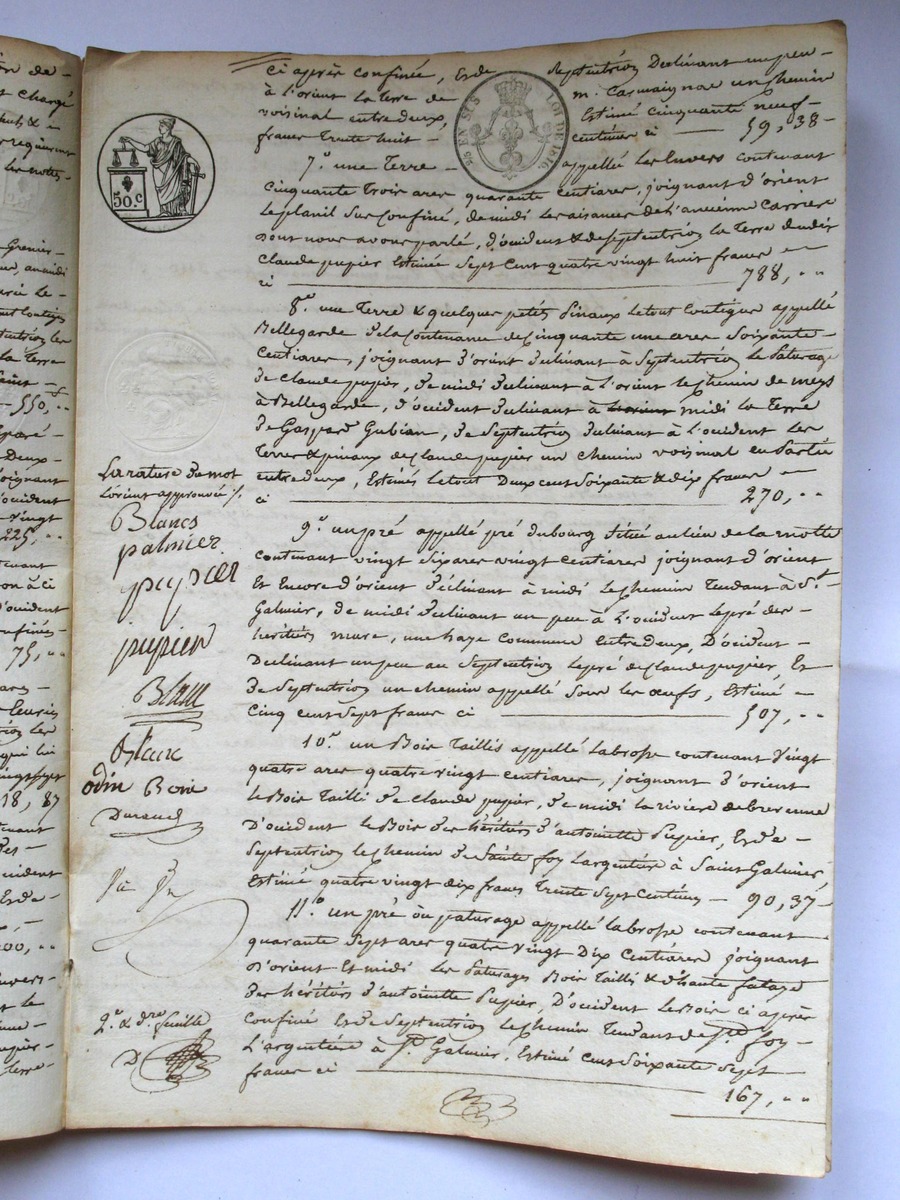 ci après confinée, et de septentrion Declinant un peu
à l'orient la terre de m. Casmaignac un chemin
voisinal entre deux, Estimé cinquante neuf
francs Trente huit centimes ci 59, 38
7.° une Terre appellée Les Envers contenant
Cinquante trois ares quarante centiares, joignant d'orient
Le planil Sus confiné, de midi Les aisances de L'ancienne Carrière
dont nous avons parlé, d'occident & de septentrion la Terre dudit
Claude pupier Estimée Sept Cent quatre vingt huit francs
ci 788, ..
8.° une Terre & quelques petits Pinaux Le tout contigus appellé
Bellegarde De la Contenance de Cinquante une ares Soixante
Centiares, joignant D'orient Declinant à Septentrion Le Paturage
De Claude pupier, De midi Declinant à l'orient le chemin de meys
à Bellegarde, d'occident Declinant à midi La Terre
De Gaspard Gubian, De Septentrion Declinant à L'occident Les
Terres & pinaux de Claude pupier un chemin voisinal en Partie
entre deux, Estimés Le tout Deux cent Soixante & dix francs
ci 270, ..
9.° un pré appellé pré dubourg Situé au lieu de la motte
contenant vingt Six ares vingt centiares joignant d'orient
Et Encore d'orient Déclinant à midi Le chemin Tendant à St
Galmier, De midi Declinant un peu à L'occident Le pré des
héritiers mure, une haye commune Entre deux, D'occident
Declinant un peu au Septentrion Le pré de Claude pupier, Et
De Septentrion un chemin appellé Sous les œufs, Estimé
Cinq cent Sept francs ci 507, ..
10.° un Bois Taillis appellé Labrosse contenant Vingt
quatre ares quatre vingt centiares, joignant D'orient
Le Bois Taillé De Claude pupier, De midi La rivière de brevenne
D'occident Le Bois des héritiers d'antoinette Pupier, Et de
Septentrion Le chemin De Sainte foy Largentière à Saint Galmier
Estimé quatre vingt dix francs Trente Sept Centimes 90, 37
11.° un pré ou paturage appellé Labrosse contenant
quarante Sept ares quatre vingt Dix Centiares joignant
D'orient Et midi Les Paturages Bois Taillé & d'haute futaye
Des héritiers d'antoinette Pupier, D'occident Le Bois ci après
Confiné Et de Septentrion Le chemin Tendant de Ste foy
L'argentière à St Galmier, Estimé Cent Soixante Sept
francs ci 167, ..
50 C
EN SUS
LOI DE 1816
La rature du mot
L'orient approuvée
Blancs
palmier
pupier
pupier
Blanc
odin Boin
Durand
2.e & d.re feuille
550, ..
225, ..
75, ..
18, 87